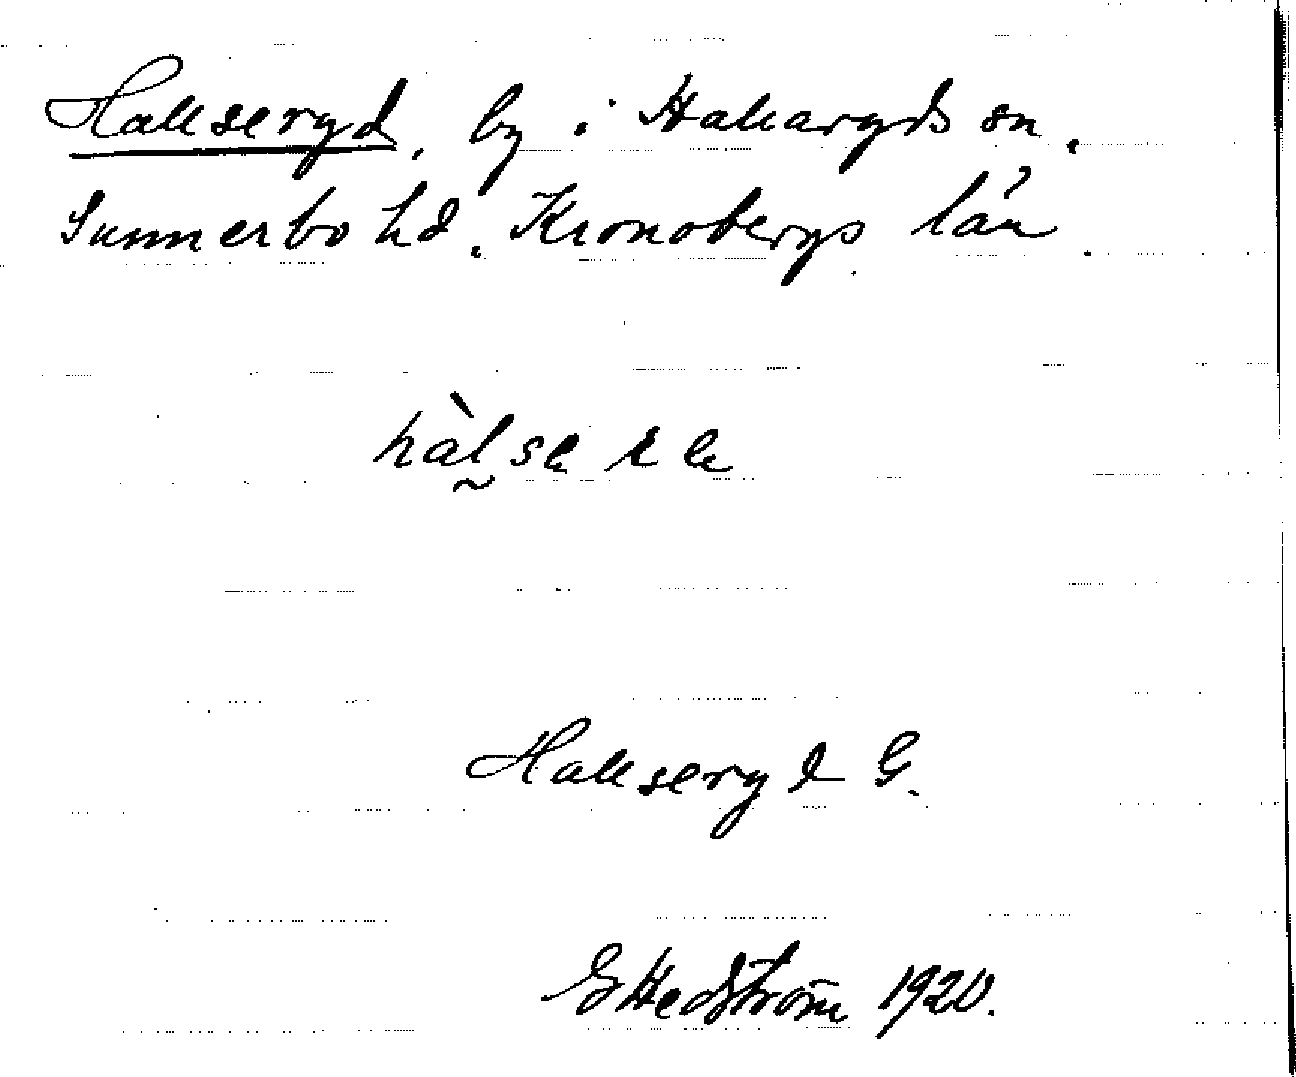 Hallseryd, by i Hallaryds sn.
Sunnerbo hd. Kronobergs län
Hallseryd G.
G Hedström 1920.